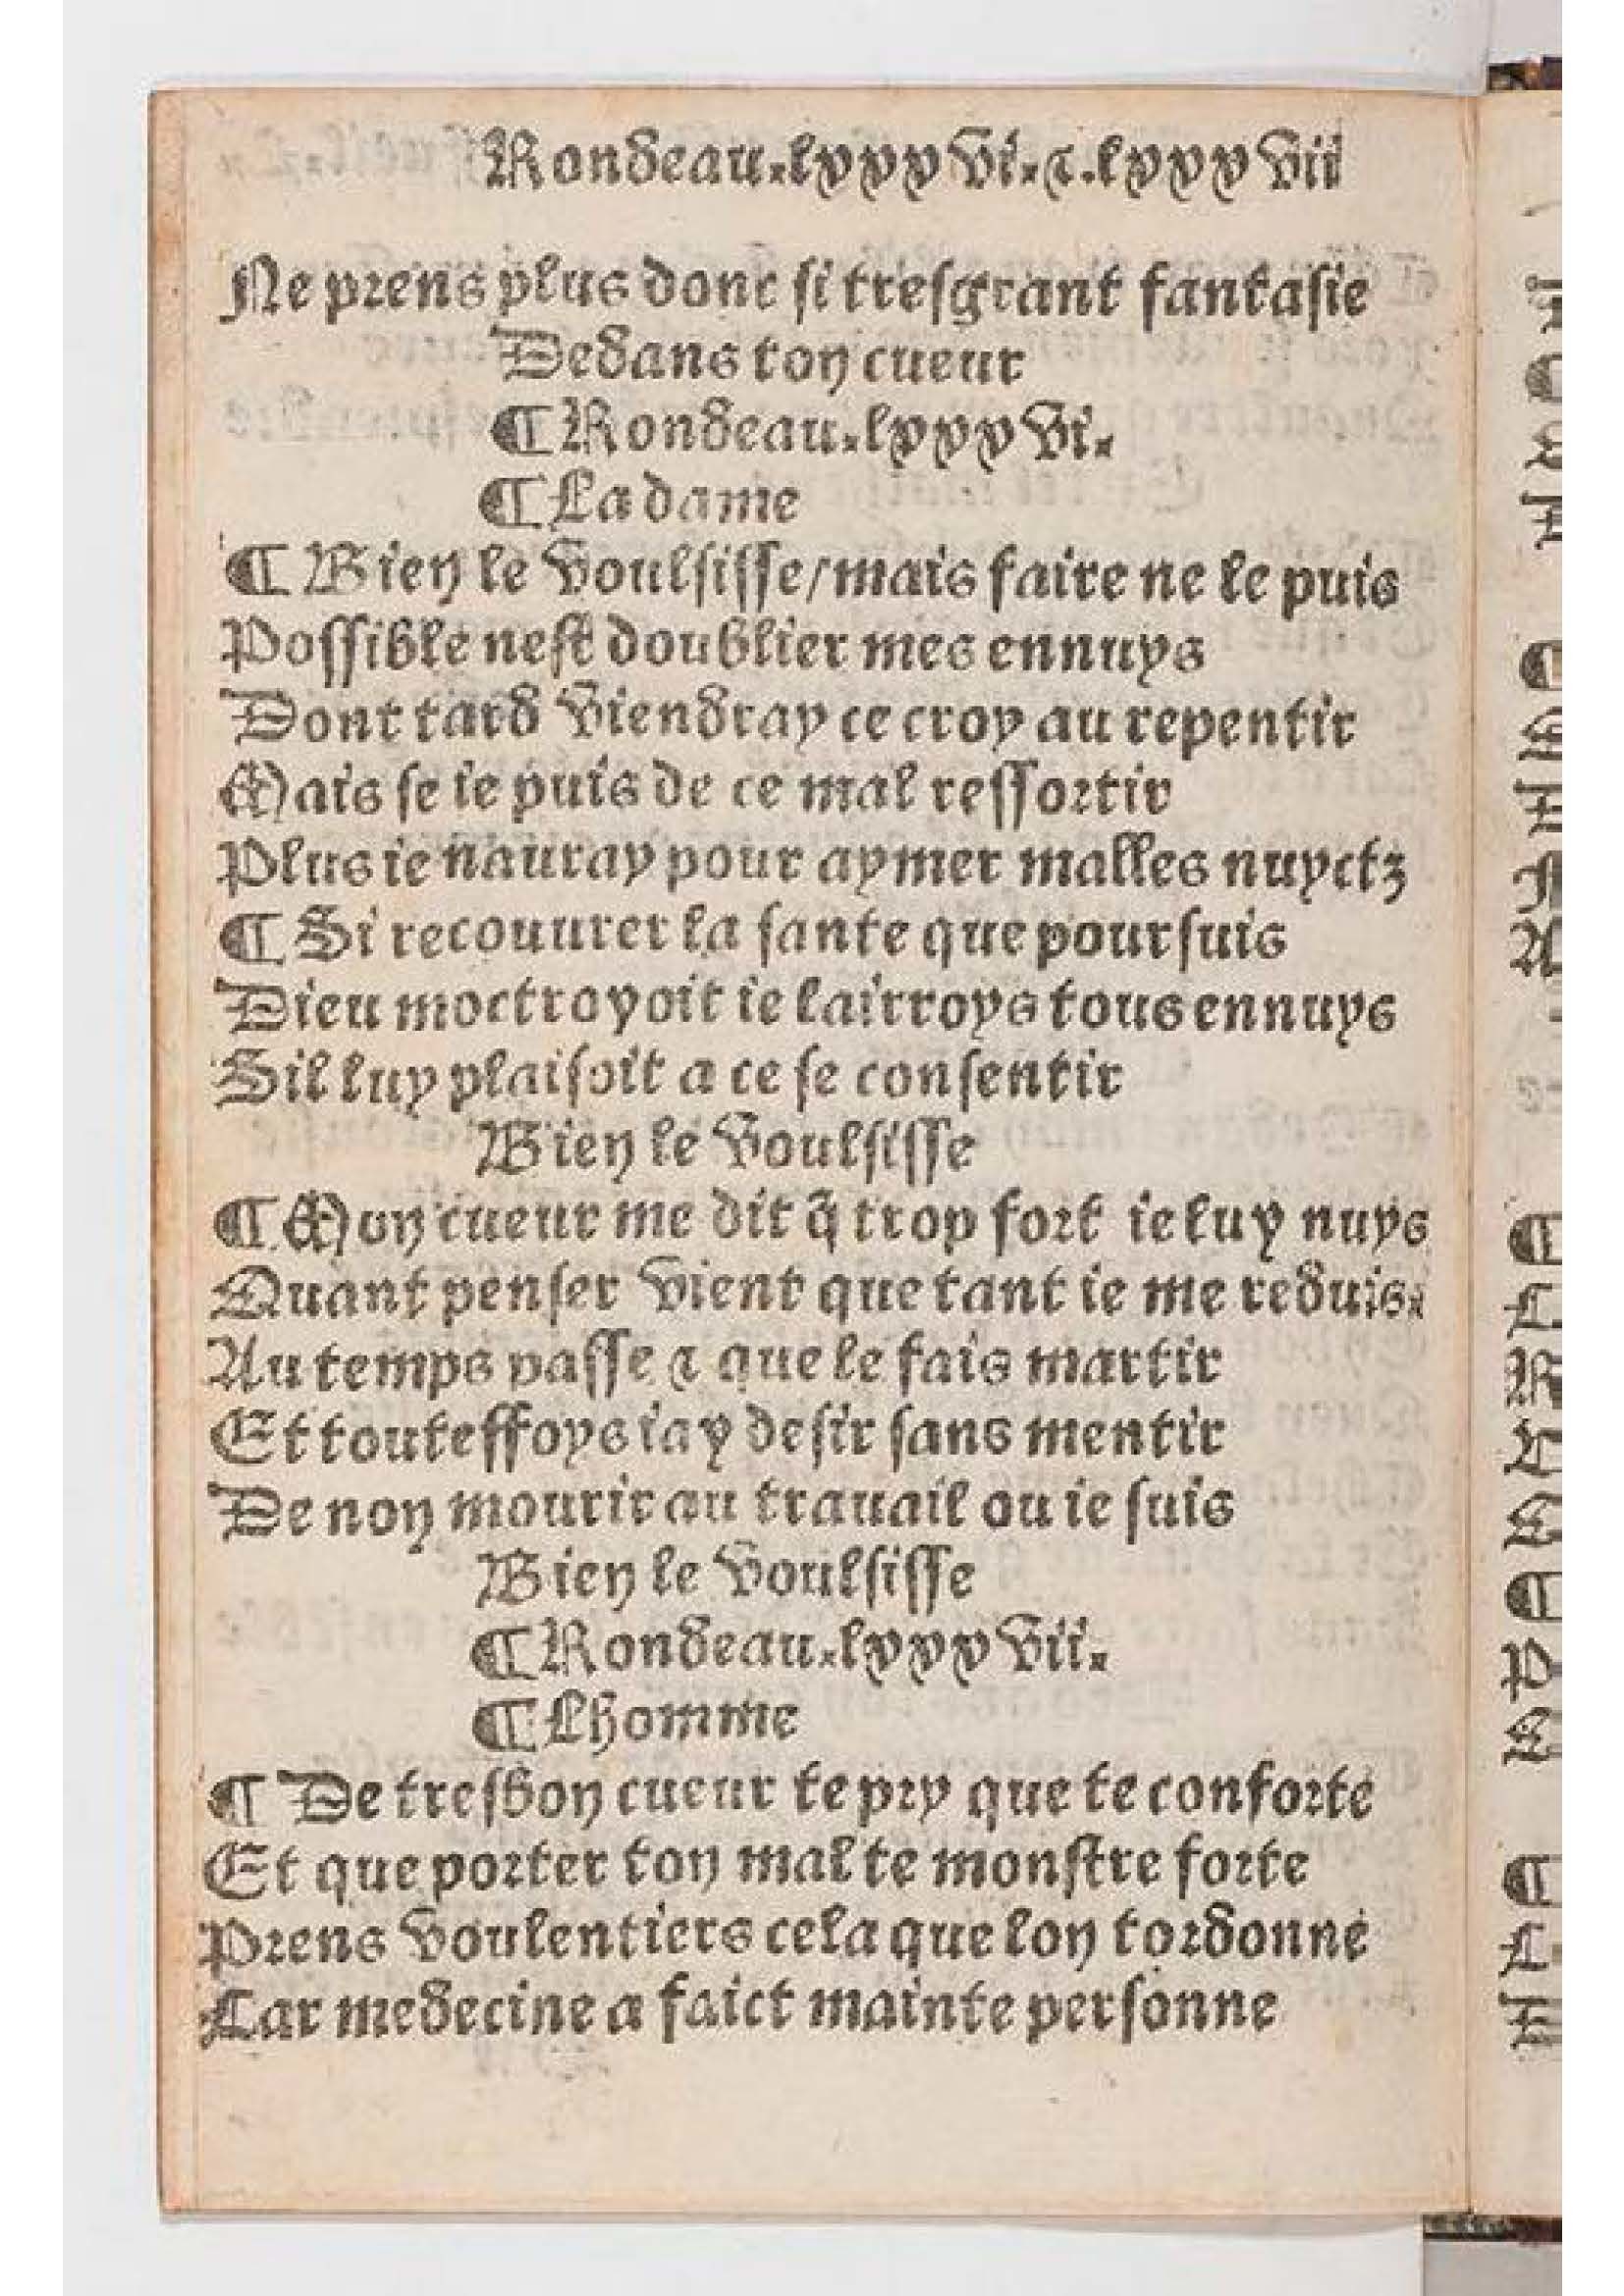 Rondeau.lxxxvi.⁊.lxxxvii
Ne prens plus donc si tresgrant fantasie
Dedans ton cueur
¶ Rondeau.lxxxvi.
¶ La dame
¶ Bien le voulsisse/mais faire ne le puis
Possible nest doublier mes ennuys
Dont tard viendray ce croy au repentir
Mais se ie puis de ce mal ressortir
Plus ie nauray pour aymer malles nuyctz
¶ Si recouurer la sante que poursuis
Dieu moctroyoit ie lairroys tous ennuys
Sil luy plaisoit a ce se consentir
Bien le voulsisse
¶ Mon cueur me dit q̃ trop fort ie luy nuys
Quant penser vient que tant ie me reduis.
Au temps passe ⁊ que le fais martir
Et touteffoys iay desir sans mentir
De non mourir au trauail ou ie suis
Bien le voulsisse
¶ Rondeau.lxxxvii.
¶ Lhomme
¶ De tresbon cueur te pry que te conforte
Et que porter ton mal te monstre forte
Prens voulentiers cela que lon tordonne
Car medecine a faict mainte personne